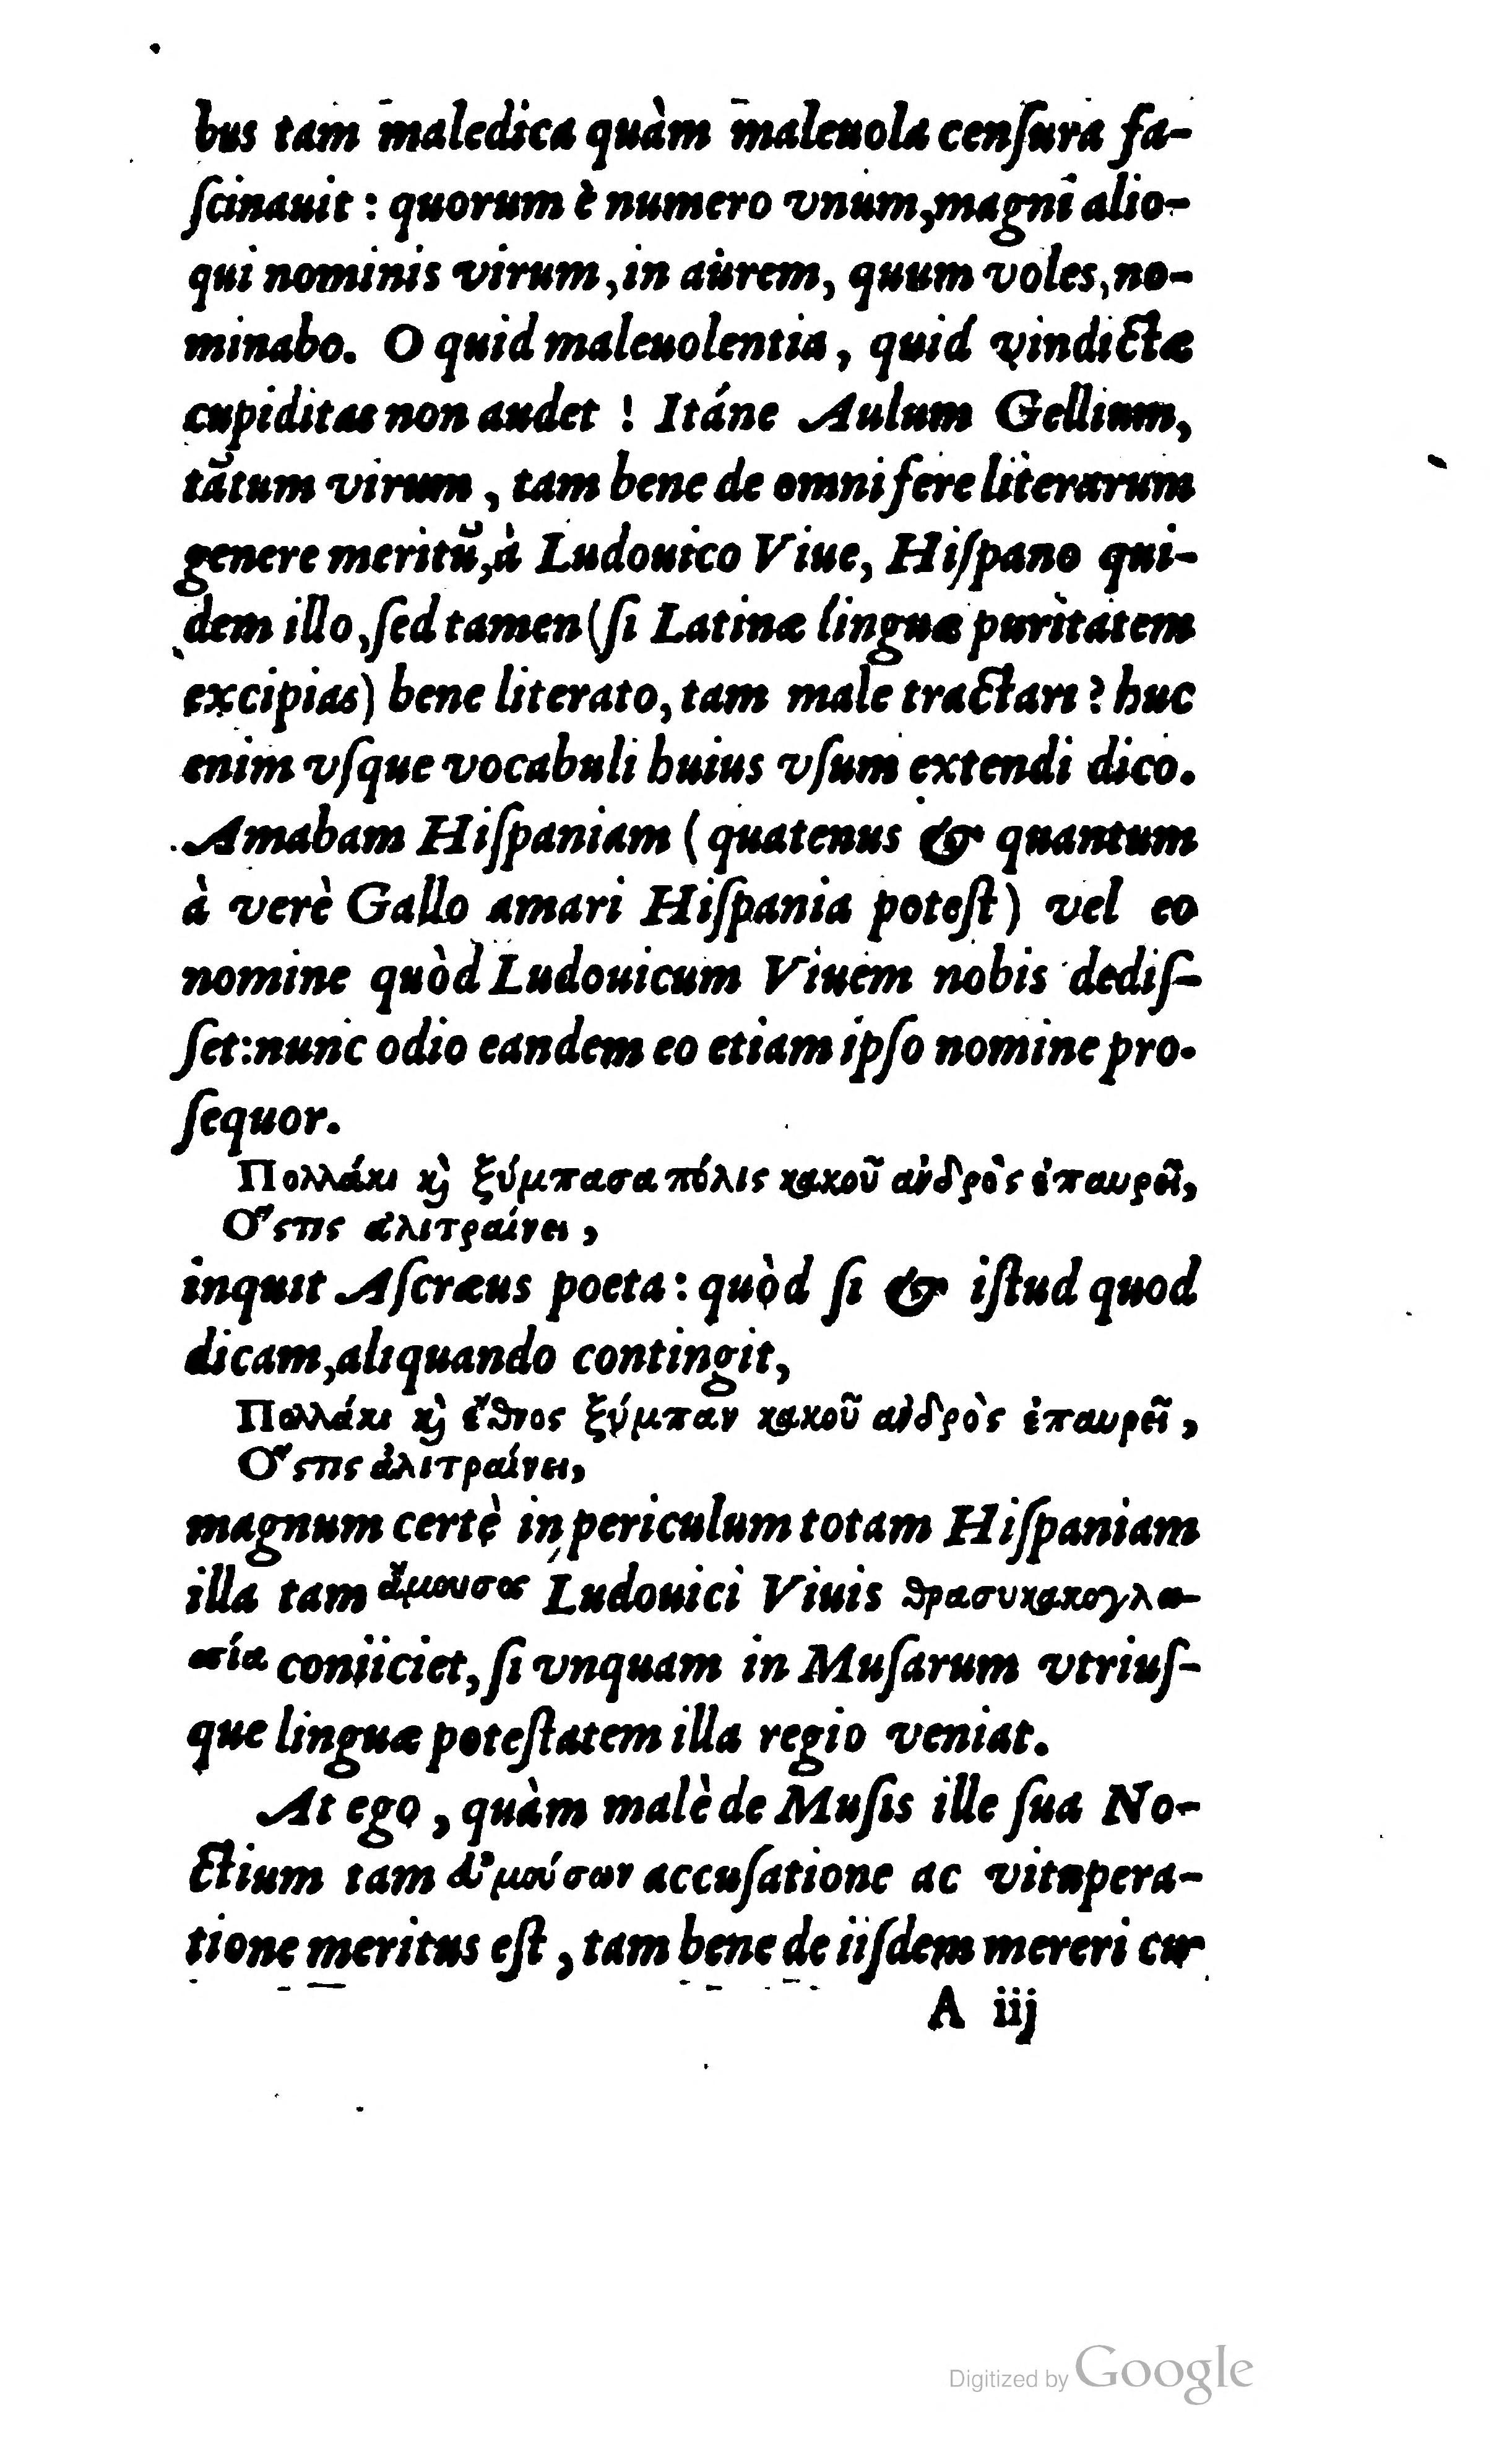 bus tam maledica quàm maleuola censura fa-
scinauit : quorum è numero vnum, magni alio-
qui nominis virum, in aurem, quum voles, no-
minabo. O quid maleuolentia, quid vindictæ
cupiditas non audet ! Itáne Aulum Gellium,
tãtum virum, tam bene de omni fere literarum
genere meritũ, à Ludouico Viue, Hispano qui-
dem illo, sed tamen (si Latinæ linguæ puritatem
excipias) bene literato, tam male tractari ? huc
enim vsque vocabuli huius vsum extendi dico.
Amabam Hispaniam ( quatenus & quantum
à verè Gallo amari Hispania potest) vel eo
nomine quòd Ludouicum Viuem nobis dedis-
set: nunc odio eandem eo etiam ipso nomine pro-
sequor.
Πολλάκι κὶ ξύμπασα πόλις κακοῦ ἀνδρὸς ἐπαυρεῖ,
Ὅστις ἀλιτραίνει,
inquit Ascræus poeta: quòd si & istud quod
dicam, aliquando contingit,
Πολλάκι κὶ ἔθνος ξύμπαν κακοῦ ἀνδρὸς ἐπαυρεῖ,
Ὅστις ἀλιτραίνει,
magnum certè in periculum totam Hispaniam
illa tam ἄμουσος Ludouici Viuis θρασυκακογλω-
σσία coniiciet, si vnquam in Musarum vtrius-
que linguæ potestatem illa regio veniat.
At ego, quàm malè de Musis ille sua No-
ctium tam ἀμούσων accusatione ac vitupera-
tione meritus est, tam bene de iisdem mereri cu
A iij
Digitized by Google